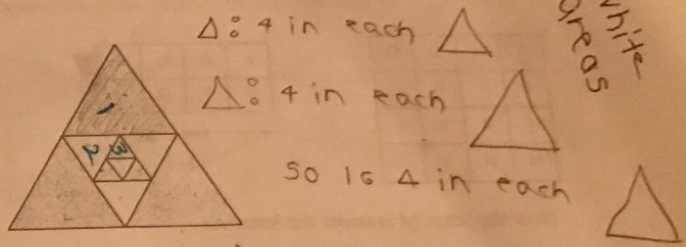 △: 4 in each △
△: 4 in each △
so 16 △ in each △
white
areas
1
2 3